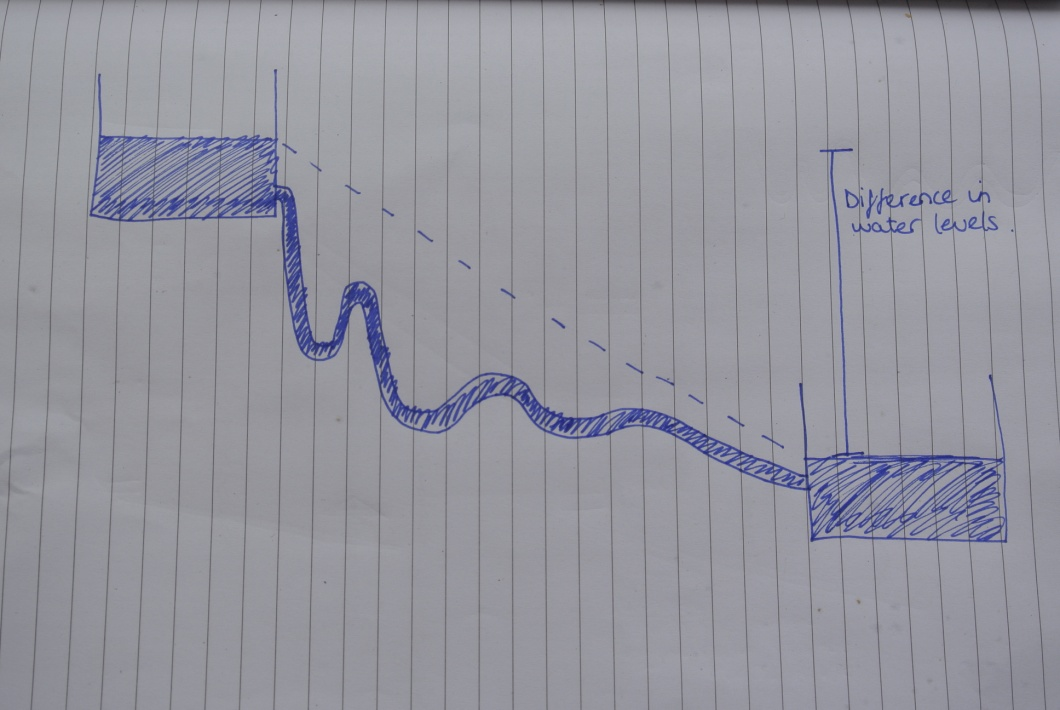 Difference in
water levels.